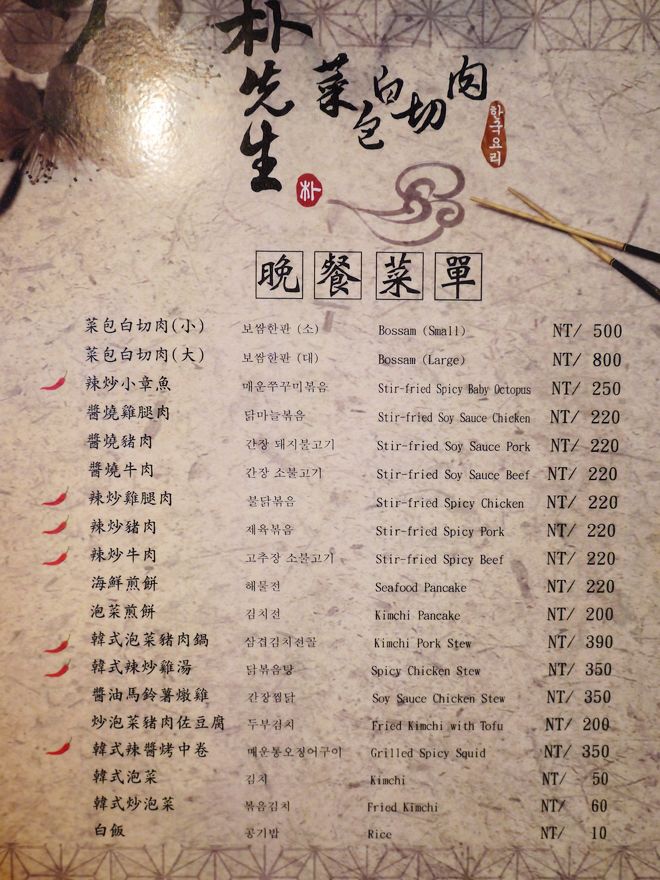 朴先生
菜包白切肉
한국요리
朴
晚餐菜單
菜包白切肉(小) 보쌈한판 (소) Bossam (Small) NT/ 500
菜包白切肉(大) 보쌈한판 (대) Bossam (Large) NT/ 800
辣炒小章魚 매운쭈꾸미볶음 Stir-fried Spicy Baby Octopus NT/ 250
醬燒雞腿肉 닭마늘볶음 Stir-fried Soy Sauce Chicken NT/ 220
醬燒豬肉 간장 돼지불고기 Stir-fried Soy Sauce Pork NT/ 220
醬燒牛肉 간장 소불고기 Stir-fried Soy Sauce Beef NT/ 220
辣炒雞腿肉 불닭볶음 Stir-fried Spicy Chicken NT/ 220
辣炒豬肉 제육볶음 Stir-fried Spicy Pork NT/ 220
辣炒牛肉 고추장 소불고기 Stir-fried Spicy Beef NT/ 220
海鮮煎餅 해물전 Seafood Pancake NT/ 220
泡菜煎餅 김치전 Kimchi Pancake NT/ 200
韓式泡菜豬肉鍋 삼겹김치전골 Kimchi Pork Stew NT/ 390
韓式辣炒雞湯 닭볶음탕 Spicy Chicken Stew NT/ 350
醬油馬鈴薯燉雞 간장찜닭 Soy Sauce Chicken Stew NT/ 350
炒泡菜豬肉佐豆腐 두부김치 Fried Kimchi with Tofu NT/ 200
韓式辣醬烤中卷 매운통오징어구이 Grilled Spicy Squid NT/ 350
韓式泡菜 김치 Kimchi NT/ 50
韓式炒泡菜 볶음김치 Fried Kimchi NT/ 60
白飯 공기밥 Rice NT/ 10